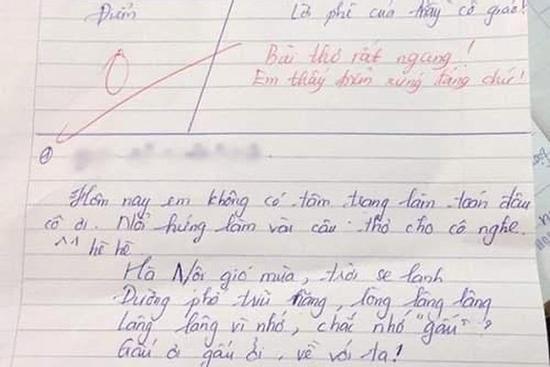 Điểm
Lời phê của thầy cô giáo!
0
Bài thơ rất ngung!
Em thấy điểm xứng đáng chứ!
Hôm nay em không có tâm trạng làm toán đâu
cô ơi. Nổi hứng làm vài câu thơ cho cô nghe.
^^ hề hề
Hà Nội gió mùa, trời se lạnh
Đường phố trữ nắng, lòng lâng lâng
Lâng lâng vì nhớ, chắc nhớ "gấu"?
Gấu ơi gấu ởi, về với ta!